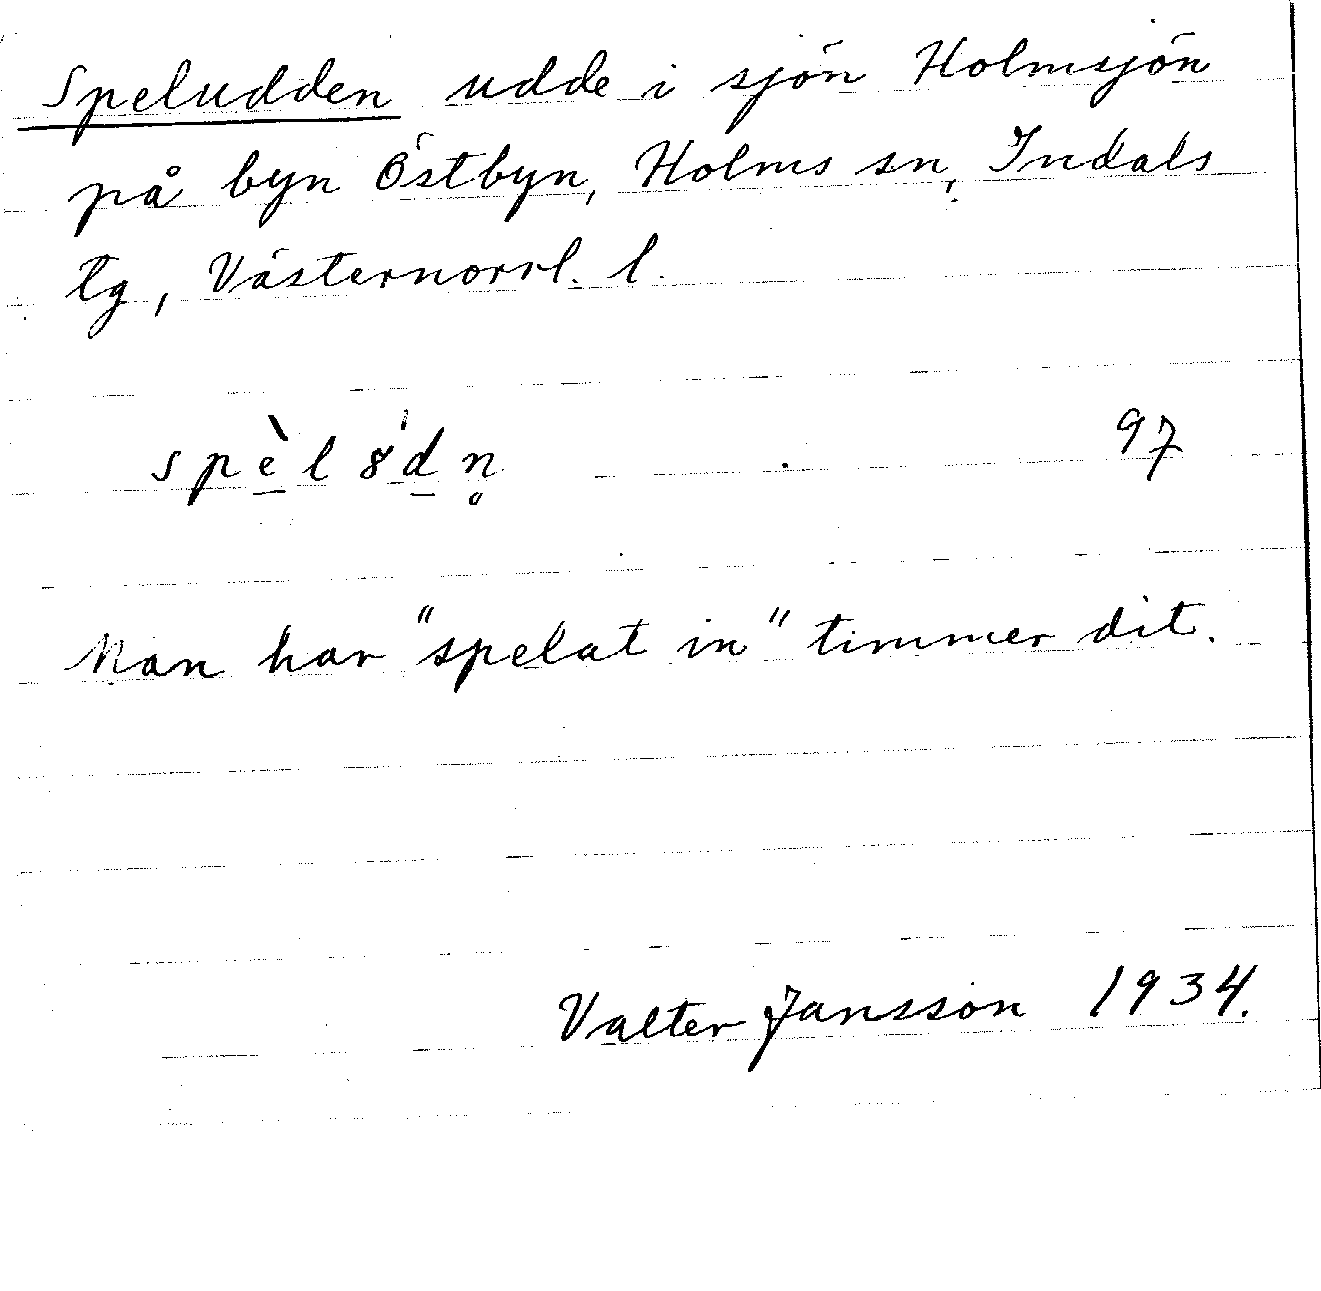 Speludden udde i sjön Holmsjön
på byn Östbyn, Holms sn, Indals
tg, Västernorrl. l.
spè̱l8'ḏn̥ 97
Man har "spelat in" timmer dit.
Valter Jansson 1934.